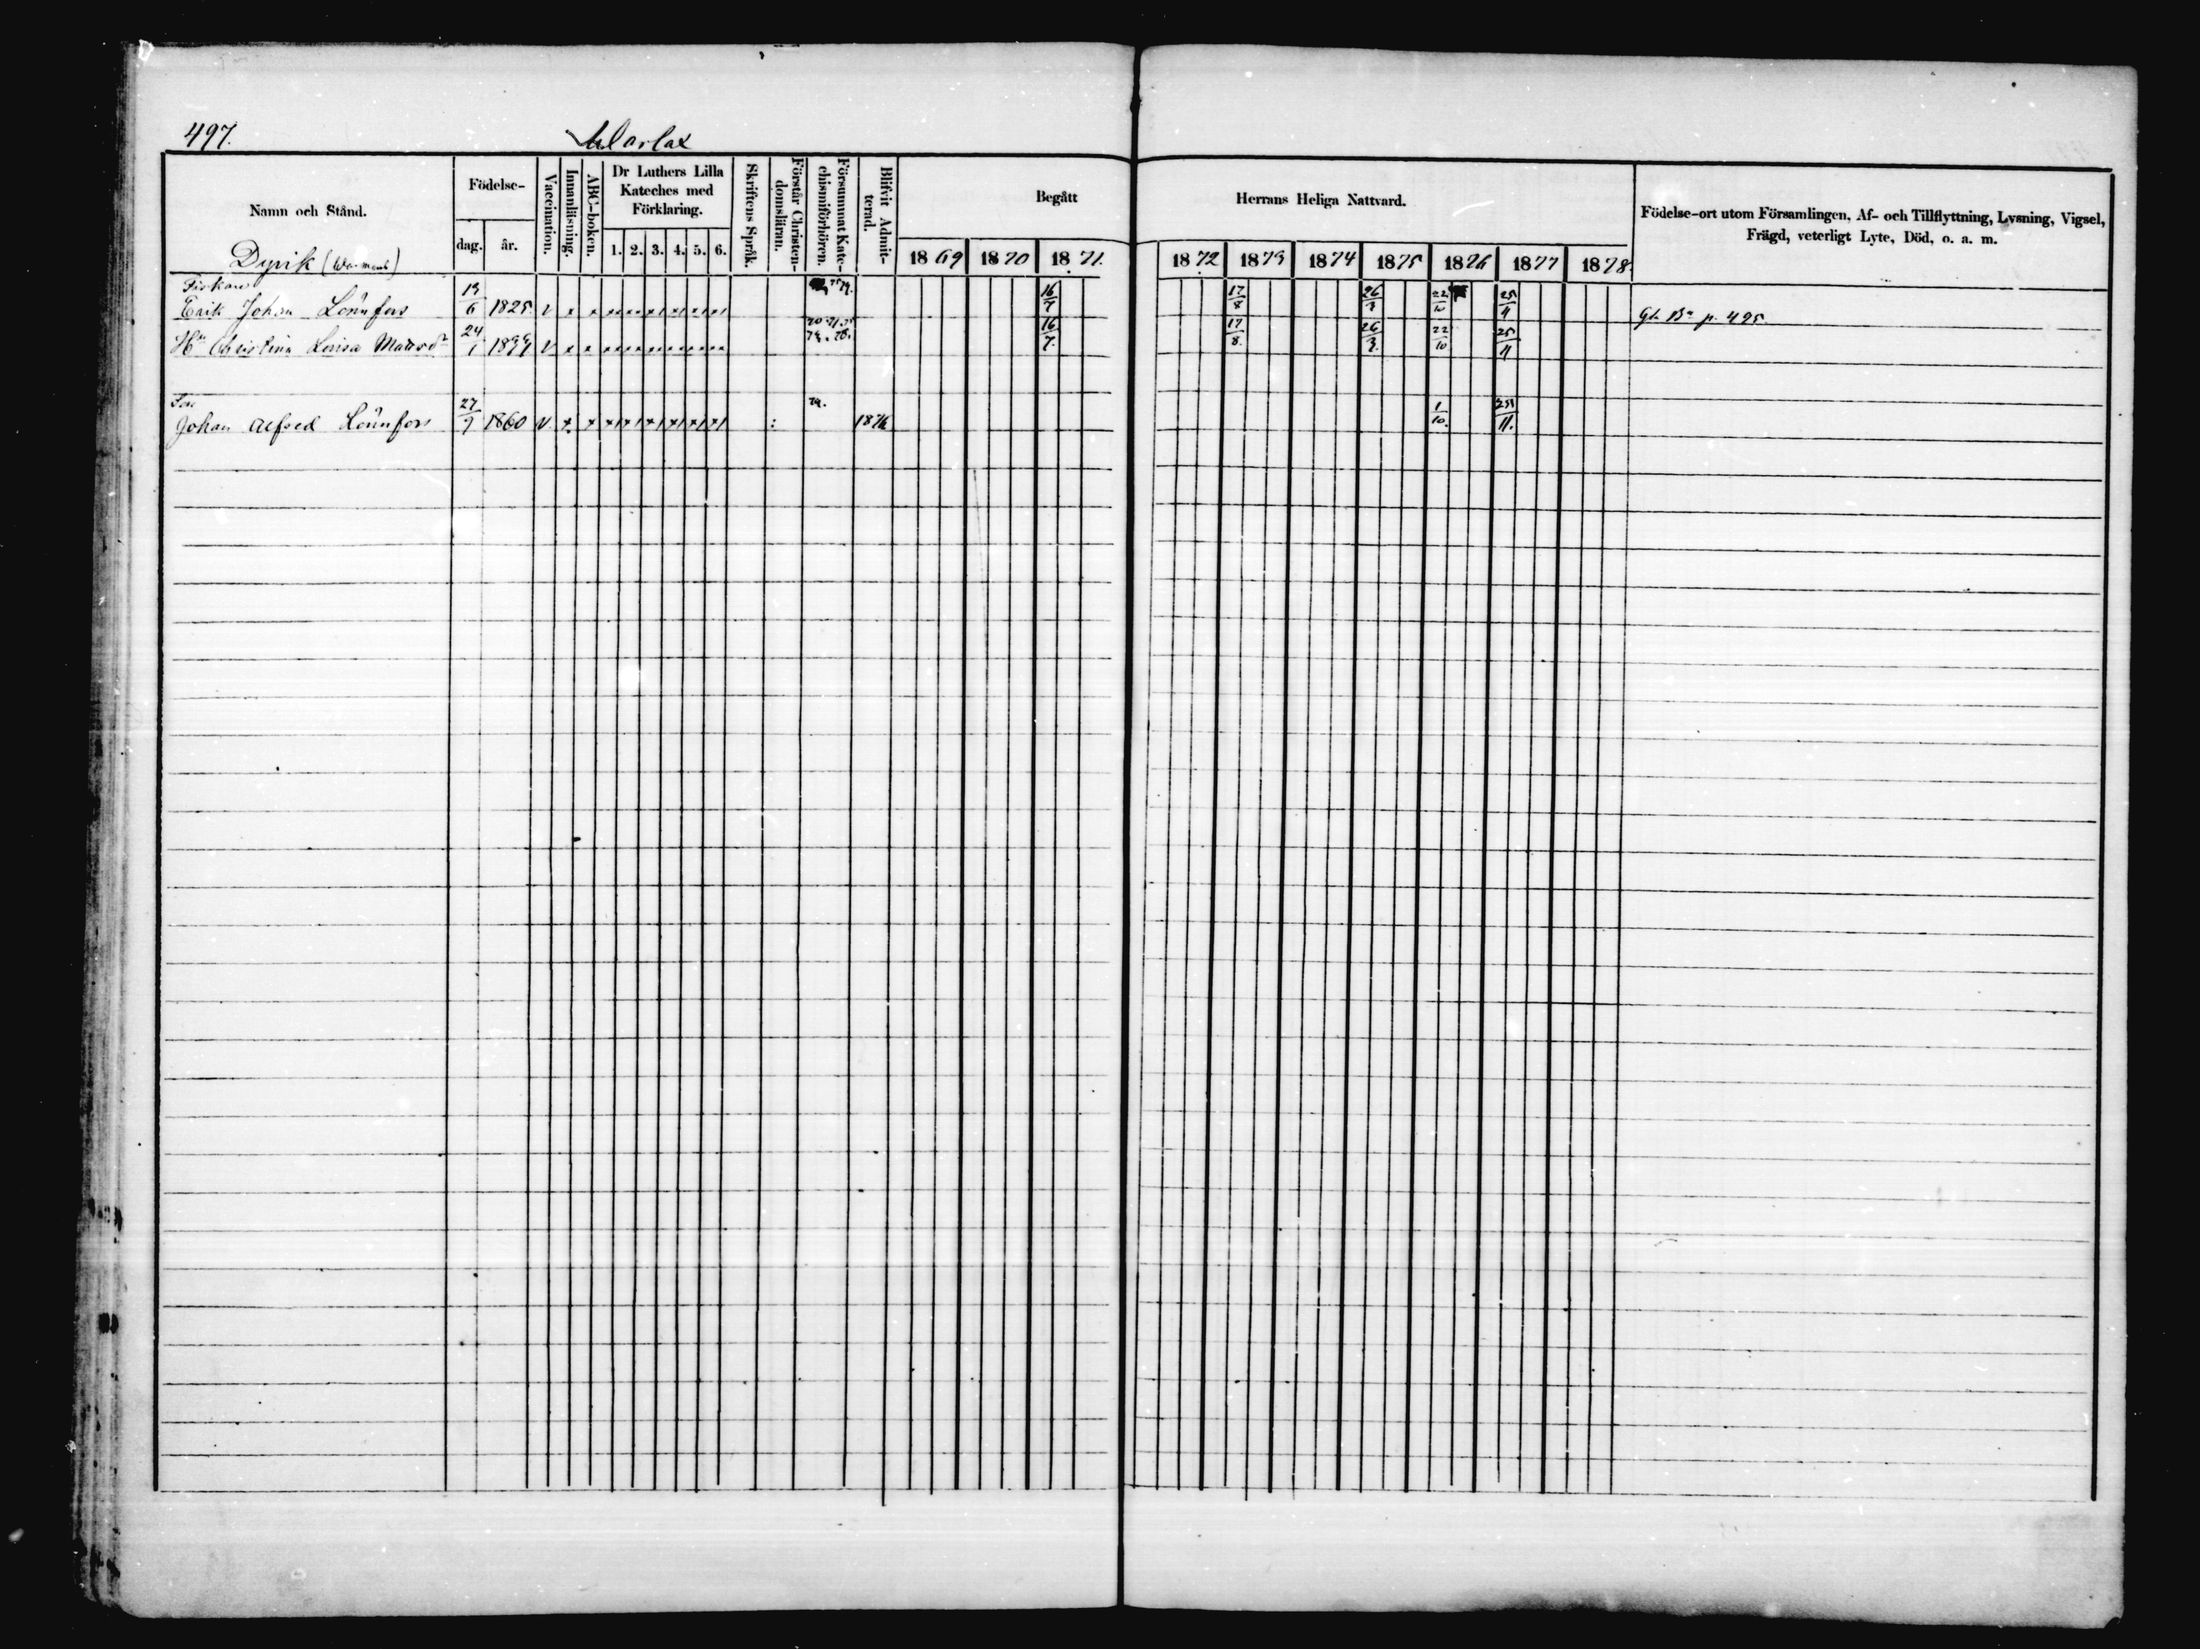 497.
Warlax
Namn och Stånd.
Födelse-
dag.
år.
Vaccination.
Innanläsning.
ABC-boken.
Dr Luthers Lilla
Kateches med
Förklaring.
1. 2. 3. 4. 5. 6.
Skriftens Språk.
Förstår Christen-
domsläran.
Försummat Kate-
chismiförhören.
Blifvit Admit-
terad.
Begått
Herrans Heliga Nattvard.
1869 1870 1871
1872 1873 1874 1875 1876 1877 1878.
Födelse-ort utom Församlingen, Af- och Tillflyttning, Lysning, Vigsel,
Frägd, veterligt Lyte, Död, o. a. m.
Dyvik
Fiskaren
Erik Johan Lönnfors 13/6 1825 v 16/7 17/8 26/3 22/10 25/11 p. 495
Hu Christina Lovisa 24/1 v 16/7. 17/8. 26/3. 22/10 25/11
Son
Johan Alfred Lönnfors 27/9 1860 v 74. 1876 1/10. 25/11.